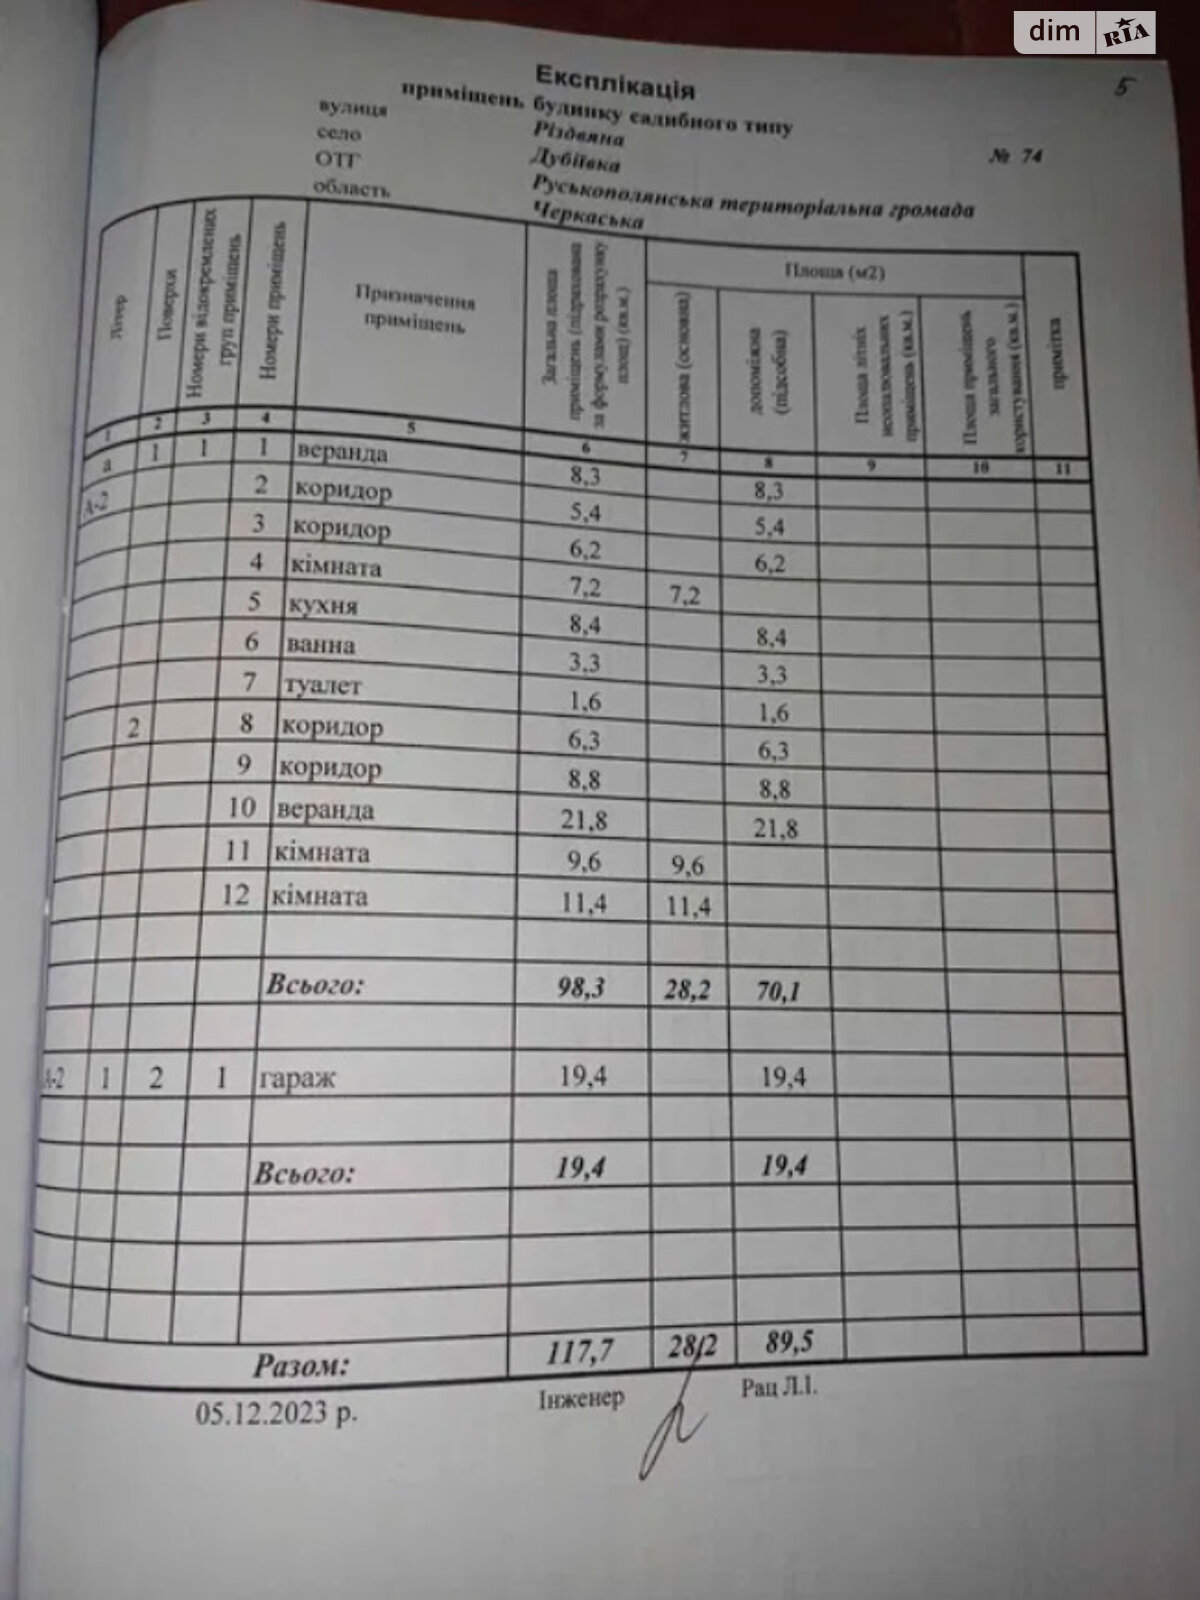 dim RIA
5
Експлікація
приміщень будинку садибного типу
вулиця Різдвяна № 74
село Дубіївка
ОТГ Руськополянська територіальна громада
область Черкаська
Літер
Поверхи
Номери відокремлених груп приміщень
Номери приміщень
Призначення приміщень
Загальна площа приміщень (підрахована за формулами розрахунку площ) (кв.м.)
Площа (м2)
житлова (основна)
допоміжна (підсобна)
Площа літніх неопалювальних приміщень (кв.м.)
Площа приміщень загального користування (кв.м.)
примітка
1 2 3 4 5 6 7 8 9 10 11
а 1 1 1 веранда 8,3 8,3
А-2 2 коридор 5,4 5,4
3 коридор 6,2 6,2
4 кімната 7,2 7,2
5 кухня 8,4 8,4
6 ванна 3,3 3,3
7 туалет 1,6 1,6
2 8 коридор 6,3 6,3
9 коридор 8,8 8,8
10 веранда 21,8 21,8
11 кімната 9,6 9,6
12 кімната 11,4 11,4
Всього: 98,3 28,2 70,1
А-2 1 2 1 гараж 19,4 19,4
Всього: 19,4 19,4
Разом: 117,7 28,2 89,5
05.12.2023 р. Інженер Рац Л.І.